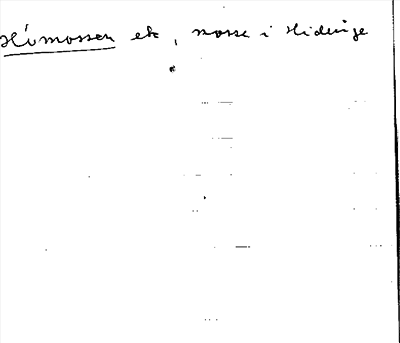 Hömossen ek, mosse i Hidinge